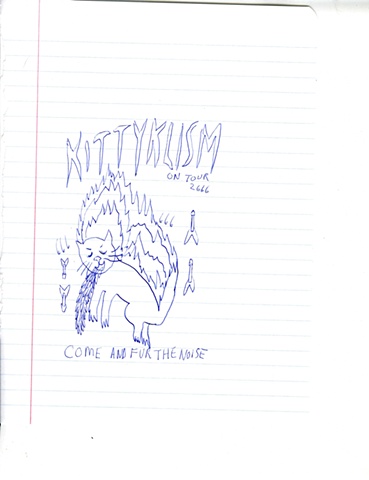 KITTYKLISM
ON TOUR
2666
666
666
COME AND FUR THE NOISE